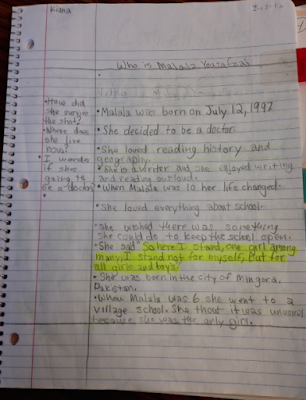 Kiana
Who is Malala Yousafzai
•How did she survive the shot?
•Where does she live now?
•I wonder if she going to be a doctor
•Malala was born on July 12, 1997
•She decided to be a doctor.
•She loved reading history and geography.
•She is a writer and she enjoyed writing and reading
•When Malala was 10 her life changed.
•She loved everything about school.
•She wished there was something she could do to keep the school open.
•She said, So here I stand, one girl among many, I stand not for myself, but for all girls and boys.
•She was been in the city of Mingora, Pakistan.
•When Malala was 6 she went to a village school. She thout it was unusual because she was the only girl.